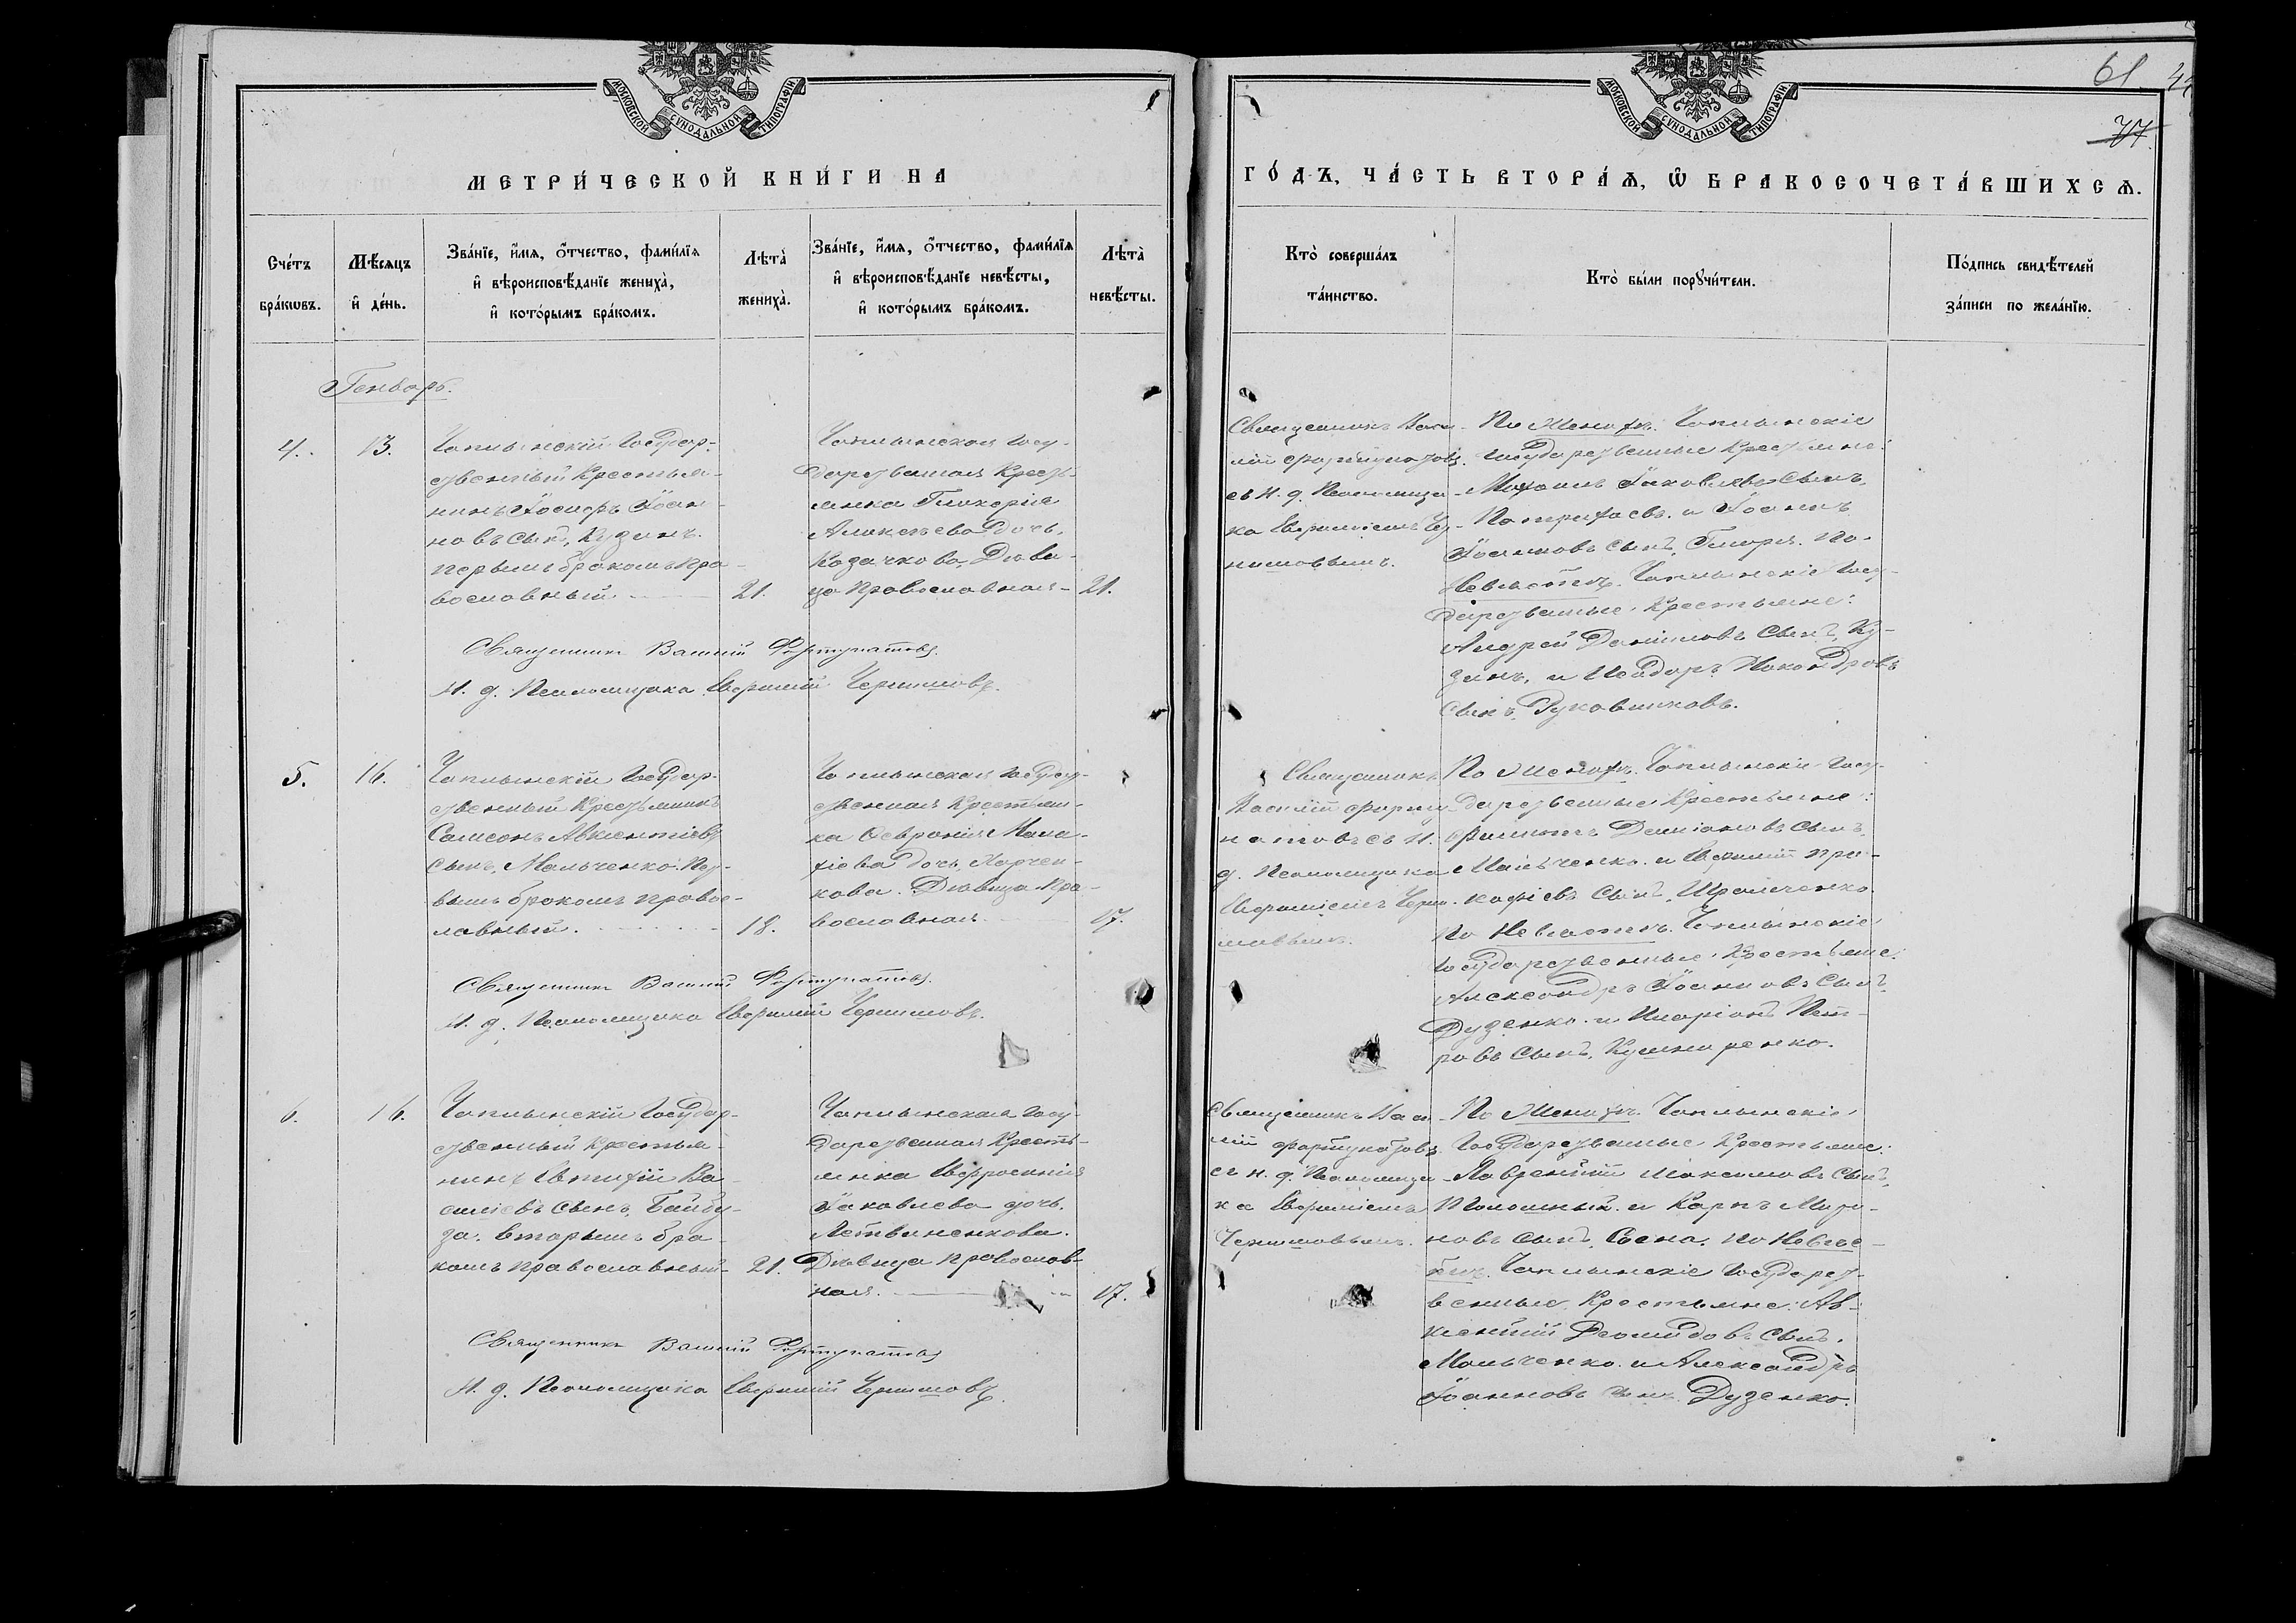 МОСКОВСКОЙ СѴНОДАЛЬНОЙ ТИПОГРАФІИ
МЕТРИ́ЧЕСКОЙ КНИ́ГИ НА
Сче́тъ
бра́ковъ.
Мѣ́сяцъ
и҆ де́нь.
Зва́нїе, и҆́мя, о҆́тчество, фами́лїя
и҆ вѣроисповѣ́данїе жениха̀,
и҆ кото́рымъ бра́комъ.
Лѣта̀
жениха̀.
Зва́нїе, и҆́мя, о҆́тчество, фами́лїя
и҆ вѣроисповѣ́данїе невѣ́сты,
и҆ кото́рымъ бра́комъ.
Лѣта̀
невѣ́сты.
Генварь.
4.
13.
Чаплынскій Государ-
ственный Крестья-
нинъ Іосифъ Іоан-
новъ сынъ, Кудинъ.
первымъ бракомъ пра-
вославный
21.
Чаплынская Госу-
дарственная Кресть-
янка Гликерія
Алексѣева дочь,
Козачкова. Дѣви-
ца Православная
21.
Священникъ Василій Фортунатовъ.
И. д. Псаломщика Евфимій
5.
16.
Чаплынскій Государ-
ственный Крестьянинъ
Самсонъ Авксентіевъ
сынъ, Мальченко. Пер-
вымъ бракомъ правос-
лавный.
18.
Чаплынская Государ-
ственная Крестьян-
ка Февронія Мала-
хіева дочь, Харчен-
кова. Дѣвица Пра-
вославная.
17.
Священникъ Василій Фортунатовъ.
И. д. Псаломщика Евфимій
6.
16.
Чаплынскій Государ-
ственный Крестья-
нинъ Евтихій Ва-
силіевъ сынъ, Байбу-
за. вторымъ бра-
комъ православный
21.
Чаплынская Госу-
дарственная Кресть-
янка Евфросинія
Іаковлева дочь,
Литвиненкова.
Дѣвица Православ-
ная.
17.
Священникъ Василій Фортунатовъ
И. д. Псаломщика Евфимій
МОСКОВСКОЙ СѴНОДАЛЬНОЙ ТИПОГРАФІИ
61
77.
ГО́ДЪ, ЧА́СТЬ ВТОРА́Ѧ, Ѡ҆ БРАКОСОЧЕТА́ВШИХСѦ.
Кто̀ соверша́лъ
та́инство.
Кто̀ бы́ли порꙋчи́тели.
По́дпись свидѣ́телей
за́писи по жела́нїю.
Священникъ Васи-
лій Фортунатовъ
съ И. д. Псаломщи-
ка Евфиміемъ
По Женихѣ. Чаплынскіе
Государственные Крестьяне:
Михаилъ Іаковлевъ сынъ,
и Іоаннъ
Іоанновъ сынъ, По
Невѣстѣ. Чаплынскіе Госу-
дарственные Крестьяне:
Андрей Даніиловъ сынъ, Ку-
динъ, и Исидоръ
сынъ, Руковишковъ.
Священникъ
Василій Форту-
натовъ съ И.
д. Псаломщика
Евфиміемъ
По Женихѣ. Чаплынскіе Госу-
дарственные Крестьяне:
Филиппъ Даміановъ сынъ,
Мальченко. и Евфимій Про-
кофіевъ сынъ,
По Невѣстѣ. Чаплынскіе
Государственные Крестьяне:
Александръ Іоанновъ сынъ,
Дузенко. и Иларіонъ Пет-
ровъ сынъ, Кушниренко.
Священникъ Васи-
лій Фортунатовъ
съ и. д. Псаломщи-
ка Евфиміемъ
По Женихѣ. Чаплынскіе
Государственные Крестьяне:
Лаврентій Максимовъ сынъ,
и Карпъ Миро-
новъ сынъ, По Невѣс-
тѣ. Чаплынскіе Государст-
венные Крестьяне: Ав-
ксентій Деомидовъ сынъ,
Мальченко. и Александръ
Іоанновъ сынъ, Дузенко.